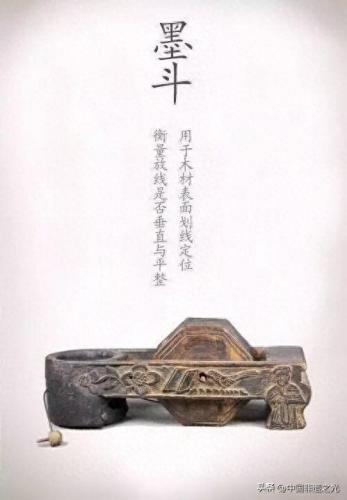 墨斗
用于木材表面划线定位
衡量放线是否垂直与平整
头条 @中国非遗之光